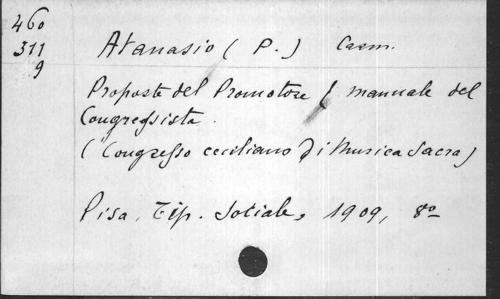 460
311
9
Atanasio ( P. ) Carm.
Proposte del Promotore ( manuale del
Congressista.
( Congresso ceciliano di Musica Sacra )
Pisa, Tip. Sociale, 1909, 8º